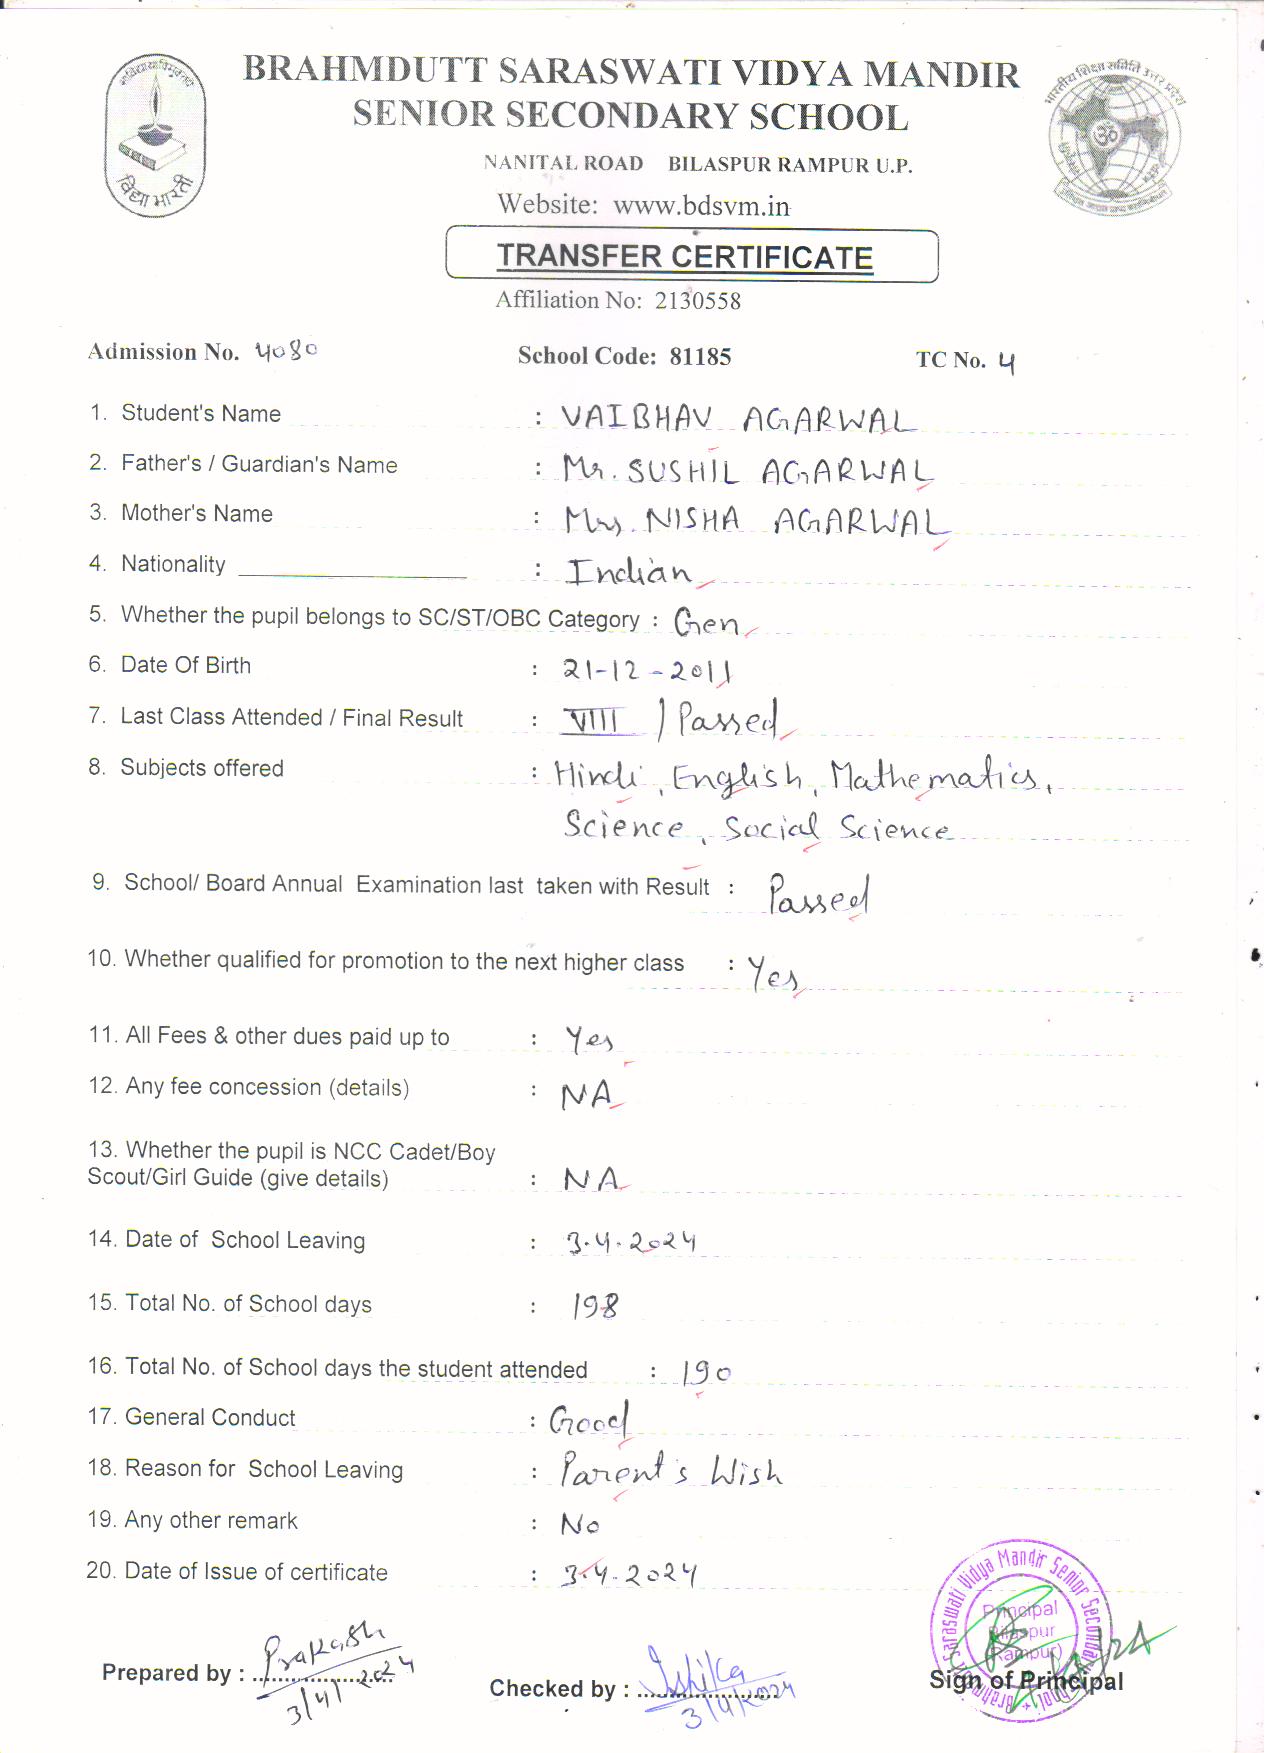 BRAHMDUTT SARASWATI VIDYA MANDIR
SENIOR SECONDARY SCHOOL
NANITAL ROAD BILASPUR RAMPUR U.P.
Website: www.bdsvm.in
विद्या भारती
भारतीय शिक्षा समिति उत्तर प्रदेश
TRANSFER CERTIFICATE
Affiliation No: 2130558
Admission No. 4080 School Code: 81185 TC No. 4
1. Student's Name : VAIBHAV AGARWAL
2. Father's / Guardian's Name : Mr. SUSHIL AGARWAL
3. Mother's Name : Mrs. NISHA AGARWAL
4. Nationality : Indian
5. Whether the pupil belongs to SC/ST/OBC Category : Gen
6. Date Of Birth : 21-12-2011
7. Last Class Attended / Final Result : VIII / Passed
8. Subjects offered : Hindi, English, Mathematics,
Science, Social Science
9. School/ Board Annual Examination last taken with Result : Passed
10. Whether qualified for promotion to the next higher class : Yes
11. All Fees & other dues paid up to : Yes
12. Any fee concession (details) : NA
13. Whether the pupil is NCC Cadet/Boy
Scout/Girl Guide (give details) : NA
14. Date of School Leaving : 3.4.2024
15. Total No. of School days : 198
16. Total No. of School days the student attended : 190
17. General Conduct : Good
18. Reason for School Leaving : Parent's Wish
19. Any other remark : No
20. Date of Issue of certificate : 3.4.2024
Saraswati Vidya Mandir Senior
Principal
Bilaspur
(Rampur)
Prepared by : Prakash
3/4/2024
Checked by : Ishika
3/4/2024
Sign of Principal